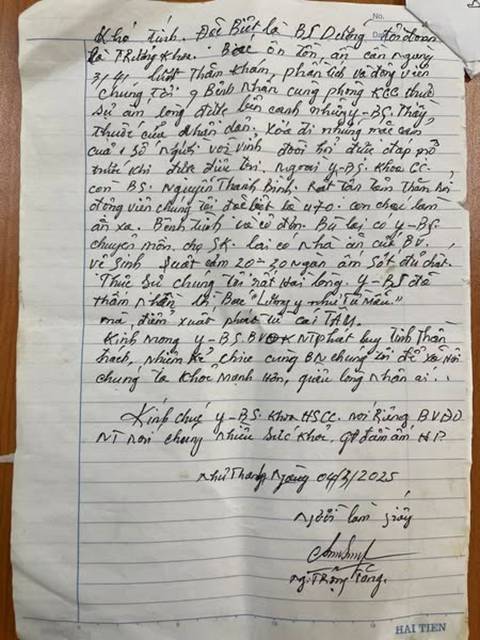 No.
Khó tính. Đặc Biệt là BS Dương
là Trưởng Khoa. Bác ôn tồn, ân cần ngày
3/4 lượt Thăm Khám, phân tích và động viên
chúng Tôi. 9 Bệnh Nhân cùng phòng KCC thực
Sự ấm lòng được bên cạnh những y-BS. Thầy
Thuốc của Nhân dân. Xóa đi những mặc cảm
của 1 số người với
trước khi được điều trị. Ngoài y-BS. Khoa CC.
còn BS. Nguyễn Thanh Bình. Rất tận tâm Thăm hỏi
động viên chúng tôi đặc biệt là U70. con cháu làm
ăn xa. Bệnh tình và cô đơn. Bù lại có y-BS.
chuyên môn. cho SK. lại có nhà ăn của BV.
vệ sinh suất cơm 20-
Thực Sự chúng tôi rất Hài lòng. y-BS để
thấm nhuần lời Bác "Lương y như Từ Mẫu"
mà điểm xuất phát từ cái TÂM.
Kính mong y-BS. BV phát huy tinh Thần
trách nhiệm chúng tôi để xã Hội
chúng ta Khoẻ mạnh Hơn, giàu lòng nhân ái...
Kính chúc y-BS. Khoa HSCC. nói Riêng BVĐD
NT nói chung nhiều Sức khỏe, gđ đầm ấm HP.
Như Thanh, Ngày 04/3/2025
Người làm giấy
Ng. Trọng Tòng.
HAI TIEN